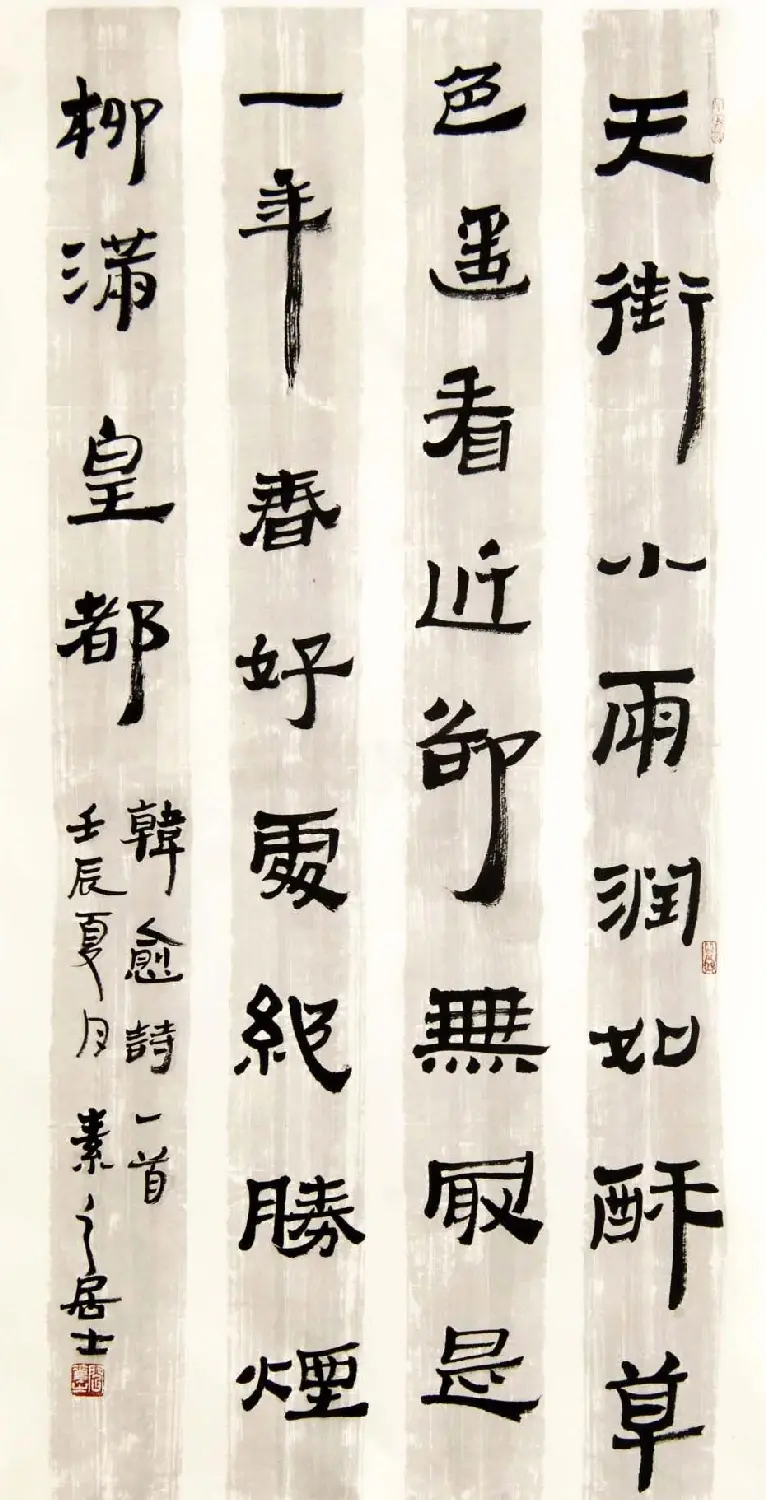 天街小雨润如酥草
色遥看近卻無最是
一年春好處絕勝煙
柳满皇都
韓愈詩一首
壬辰夏月素之居士